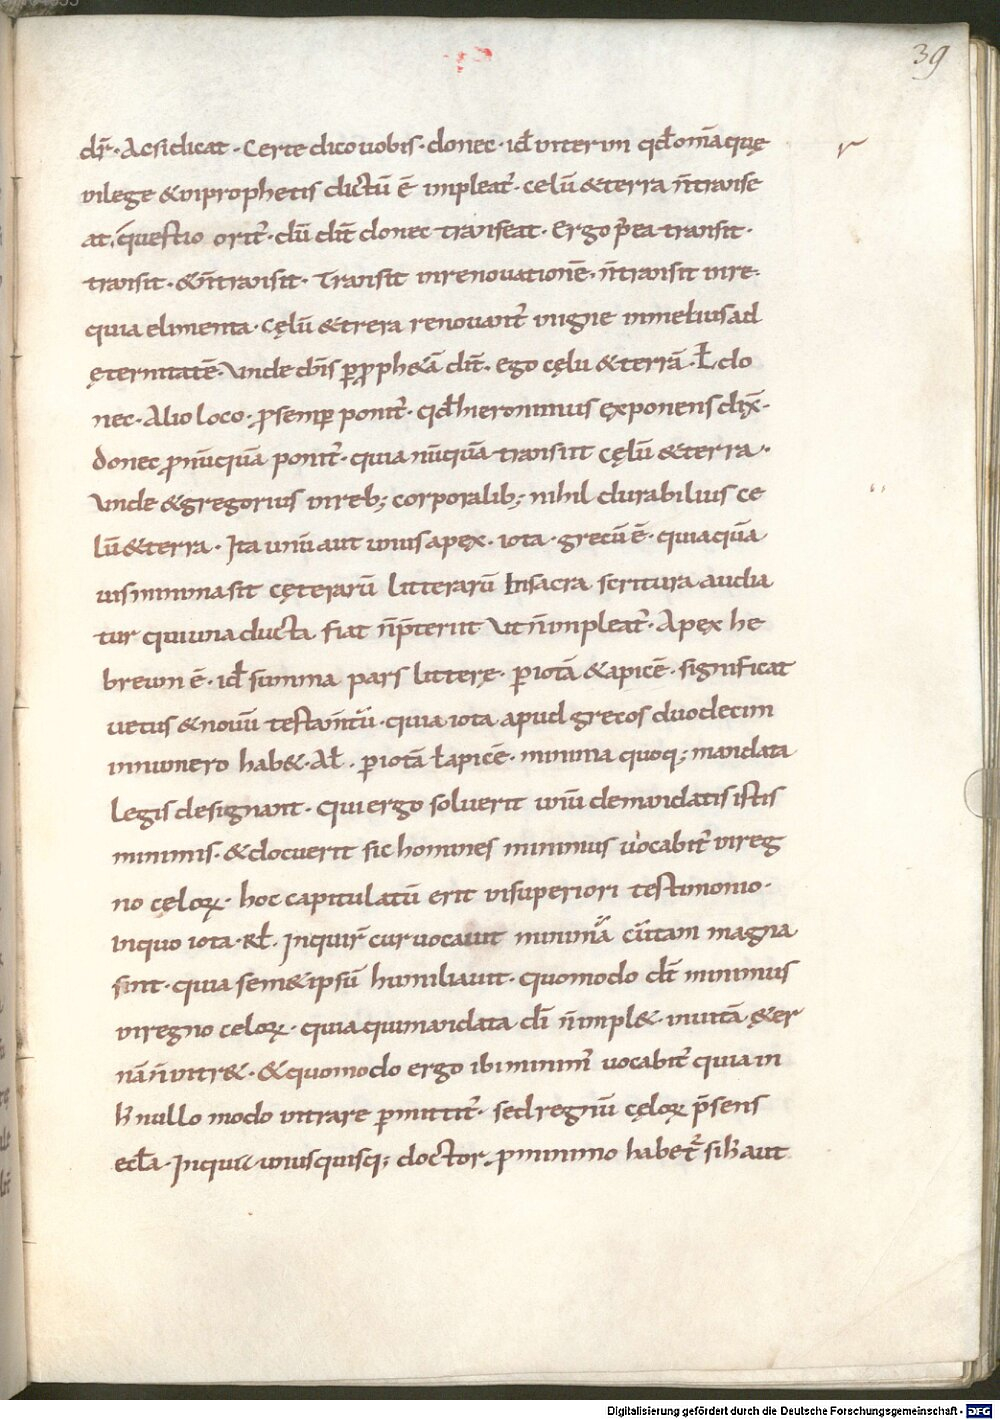 39
dr̄ · Acsidicat · Certe dico uobis · donec · id̄ interim qd̄ om̄iaquę
inlege & inprophetis dictū ē impleat̄ · celū & terra n̄ transe
at, questio orit̄ · cū dic̄t donec transeat · Ergo p̄ea transit ·
transit · & n̄ transit · Transit inrenouationē · n̄ transit inre ·
quia elimenta · cęlū & terra renouant̄ inigne inmelius ad
ęternitatē · Unde dn̄s p prophetā dic̄t · ego cęlū & terrā · ł do
nec · Alio loco · p semp ponit̄ · qd̄ hieronimus ęxponens dix̄ ·
donec p nūquā ponit̄ · quia nūquā transiit cęlū & terra ·
Unde & gregorius inreb; corporalib; nihil durabilius ce
lū & terra · Ita unū aut unius apex · iota · grecū ē · quia quā
uis minima sit cęterarū litterarū Insacra scritura audia
tur qui una ducta fiat n̄ p̄teriit Ut n̄ impleat̄ · Apęx he
breum ē · id̄ summa pars litterę · p iotā & apicē · significat
uetus & nouū testam̄tū · quia iota apud grecos duodecim
innumero hab& · Al̄ · p iotā ł apicē · minima quoq; mandata
legis designant · Qui ergo soluerit unū demandatis istis
minimis · & docuerit sic homines minimus uocabit̄ inreg
no cęloꝝ · hoc capitulatū erit insuperiori testimonio ·
Inquo iota · Rł · Inquir̄ cur uocauit minima cū tam magna
sint · quia sem&ipsū humiliauit · quomodo dic̄t minimus
inregno celoꝝ · quia qui mandata dī n̄ impl& · inuitā ęter
nā n̄ intr& · & quomodo ergo ibi minim̄ uocabit̄ quia in
h̄ nullo modo intrare p̄mittit̄ · sed regnū cęloꝝ p̄sens
eccła · Inqua unusquisq; doctor p minimo habet̄ si h̄ aut
Digitalisierung gefördert durch die Deutsche Forschungsgemeinschaft - DFG